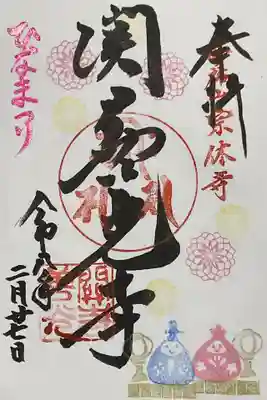 奉拝
宗休寺
関善光寺
令和八年
二月廿七日
ひなまつり